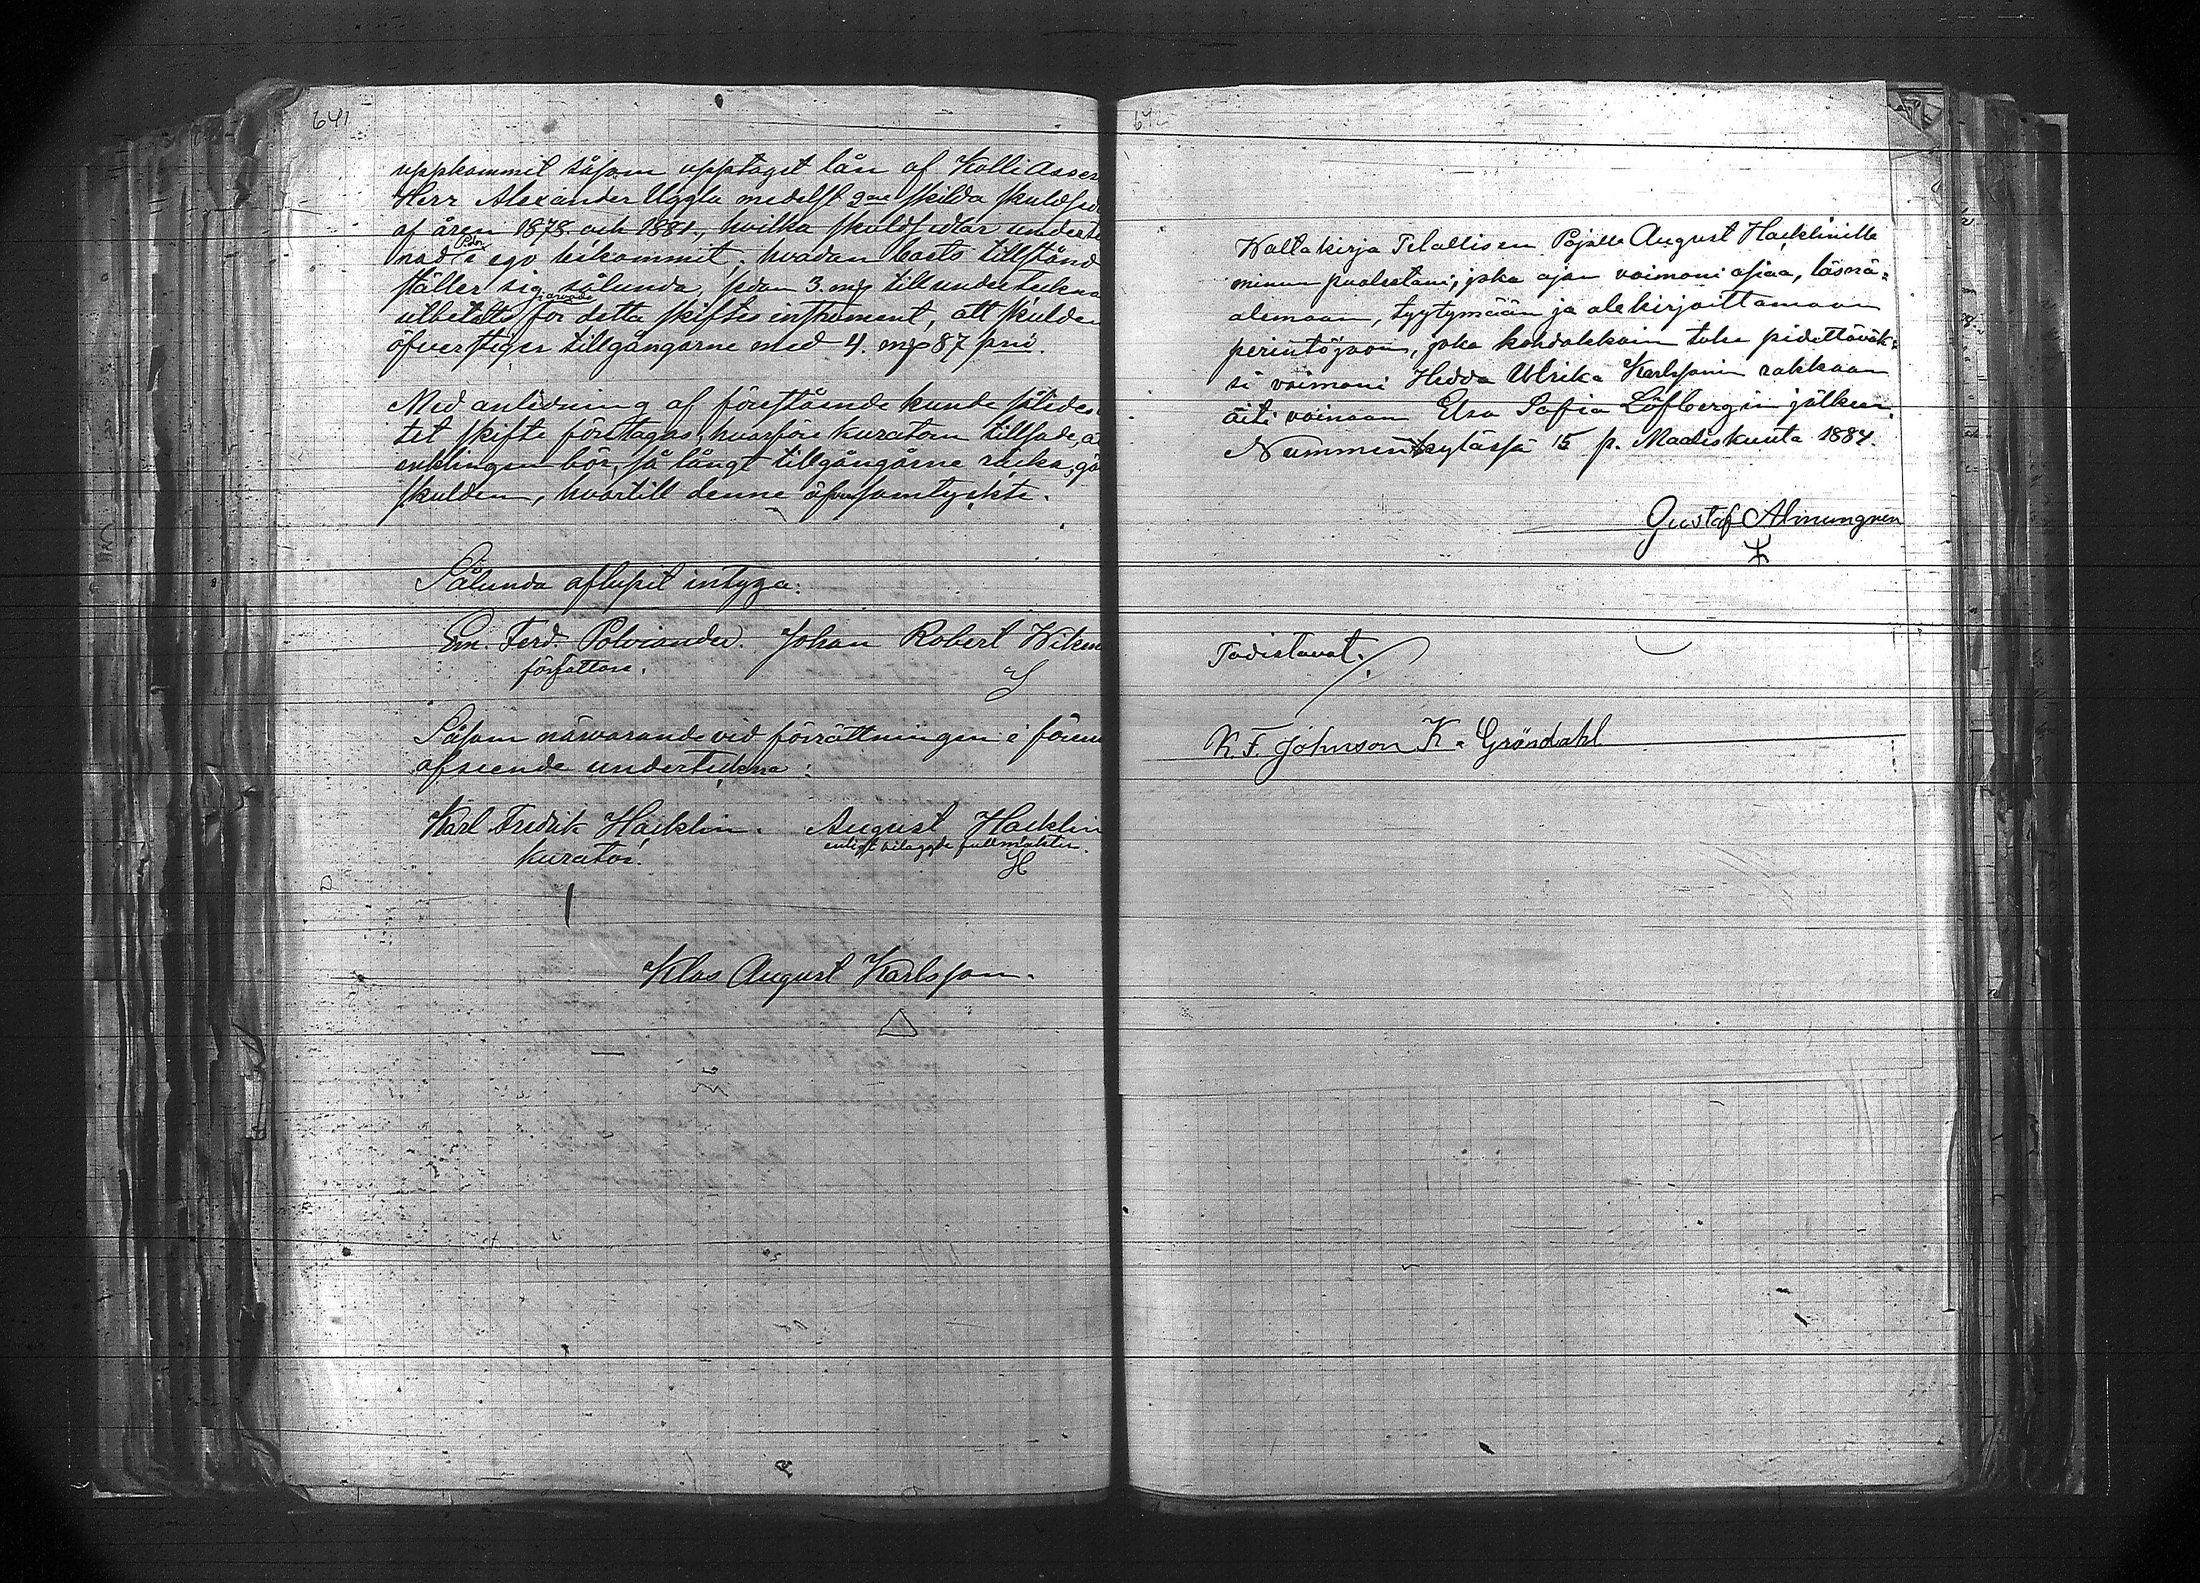 641
uppkommit såsom upptaget lån af KolliAsses
Herr Alexander Uggla medelst 2ne skilda skuldse
af åren 1878 och 1881, hvilka skuldsedlar underte
nad Polv. i ego bekommit; hvadan boets tillstånd
ställer sig sålunda, sedan 3. mf till undertekna
utbetalts i arvode för detta skiftes instrument, att skulden
öfverstiger tillgångarne med 4. mf 87 pni.
Med anledning af förestående kunde sålides
tet skifte företagas, hvarföre kuratorn tillsade, a
enklingen bör, så långt tillgångarne räcka, gä
skulden, hvartill denne äfven samtyckte.
Sålunda aflupit intyga:
Em. Ferd. Polviander. Johan Robert Wikm
författare.
Såsom närvarande vid förrättningen i förem
afseende underteckna:
Karl Fredrik Häcklin. August Häcklin
enligt bilagde fullmakter.
kurator. H
Klas August Karlsson.
642
Waltakirja Tilallisen Pojalle August Häcklinille
minun puolestani, joka ajan vaimoni asiaa, läsnä=
olemaan, tyytymään ja alekirjoittamaan
perintöjaon, joka kohdakkoin tulee pidettäväk=
si vaimoni Hedda Ulrika Karlssonin rakkaan
äiti vainaan Elsa Sofia Löfbergin jälkeen.
Nummenkylässä 15 p. Maaliskuuta 1884.
Gustaf Almungren
Todistavat:
K. F. Johnson K. Gröndahl